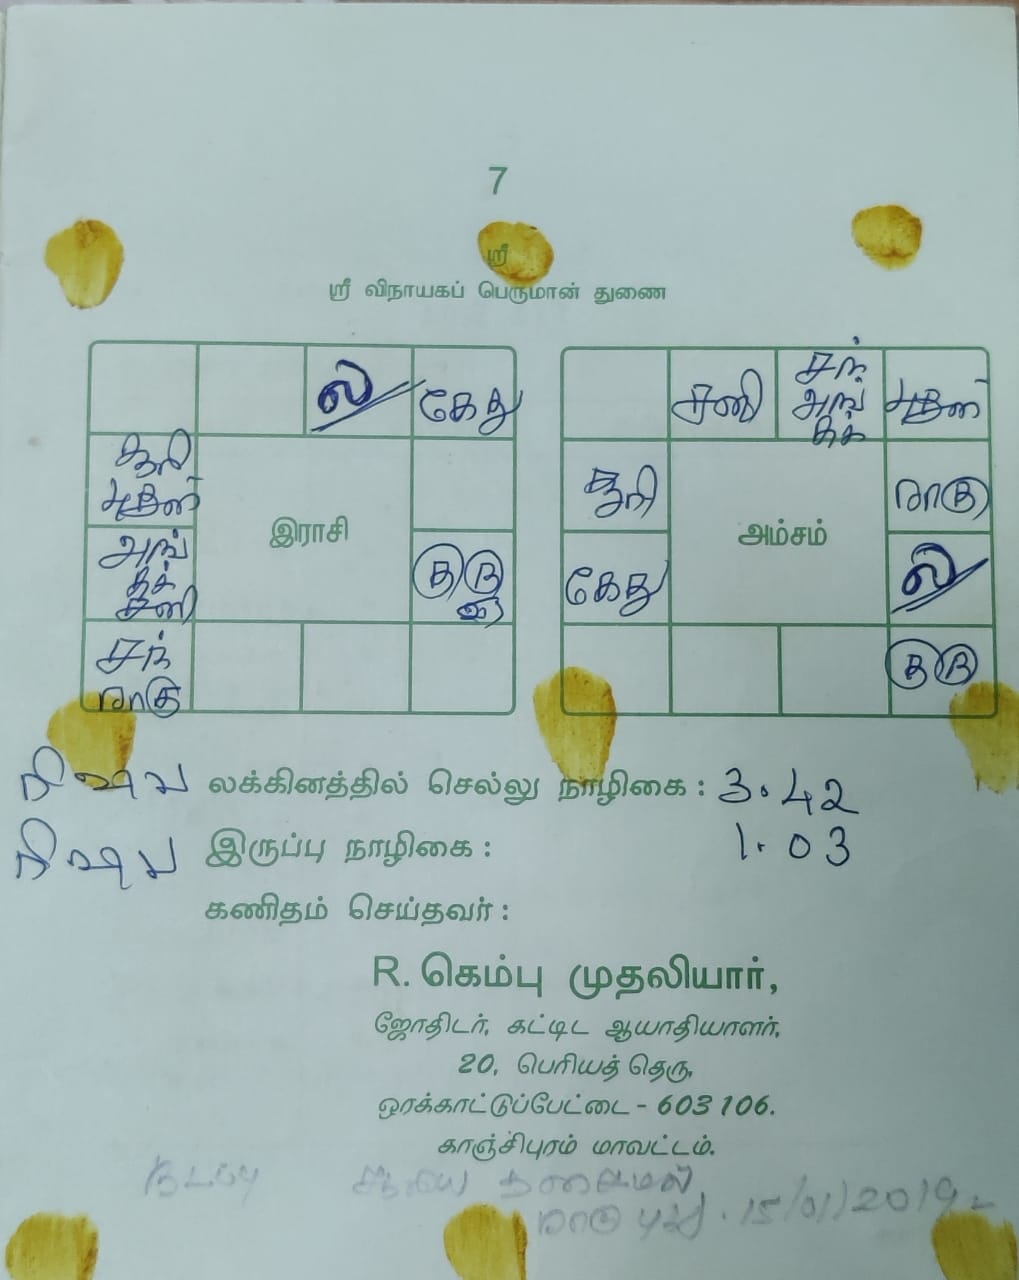 7
ஸ்ரீ
ஸ்ரீ விநாயகப் பெருமான் துணை
ல கேது
சூரி
புதன்
அங்
சுக்
சனி
இராசி
குரு
சந்
ராகு
சனி சந் அங் சுக் புதன்
சூரி ராகு
அம்சம்
கேது ல
குரு
ரிஷப லக்கினத்தில் செல்லு நாழிகை : 3.42
ரிஷப இருப்பு நாழிகை : 1.03
கணிதம் செய்தவர் :
R. கெம்பு முதலியார்,
ஜோதிடர், கட்டிட ஆயாதியாளர்,
20, பெரியத் தெரு,
ஒரக்காட்டுப்பேட்டை - 603 106.
காஞ்சிபுரம் மாவட்டம்.
நடப்பு
ராகு புத்தி . 15/01/2019